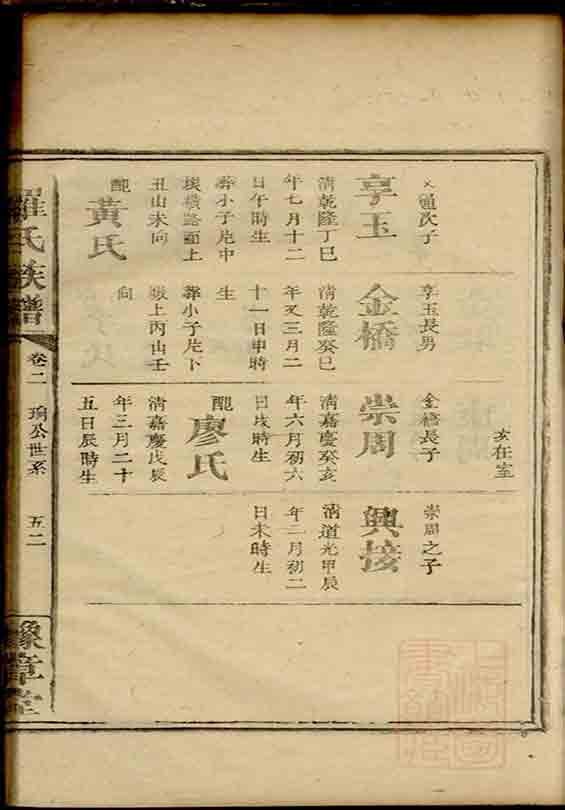 次子
享玉
清乾隆丁巳
年七月十二
日午時生
葬小子片中
橫路面上
丑山未向
配
黃氏
享玉長男
金橋
清乾隆癸巳
年又三月二
十一日申時
生
葬小子片下
上丙山壬
向
亥在室
金橋長子
崇周
清嘉慶癸亥
年六月初六
日戌時生
配
廖氏
清嘉慶戊辰
年三月二十
五日辰時生
崇周之子
興接
清道光甲辰
年二月初二
日未時生
羅氏族譜
卷二
公世系
五二
豫章堂
上海圖書館藏